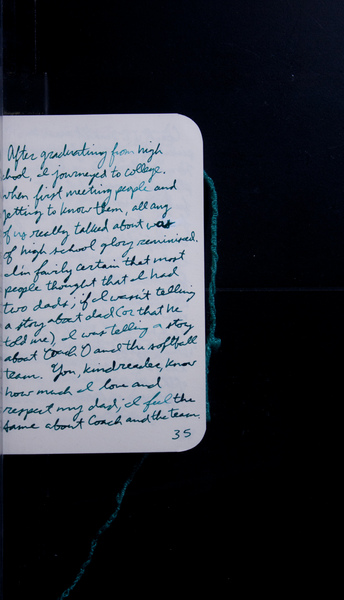 After graduating from high
chool, I journeyed to college.
when first meeting people and
getting to know them, all any
of us really talked about was
of high school glory reminised.
I'm fairly certain that most
people thought that I had
two dads; if I wasn't telling
a story about dad (or that he
told me) I was telling a story
about Coach O and the softball
team. You, kind reader, know
how much I love and
respect my dad; I feel the
same about Coach and the team.
35